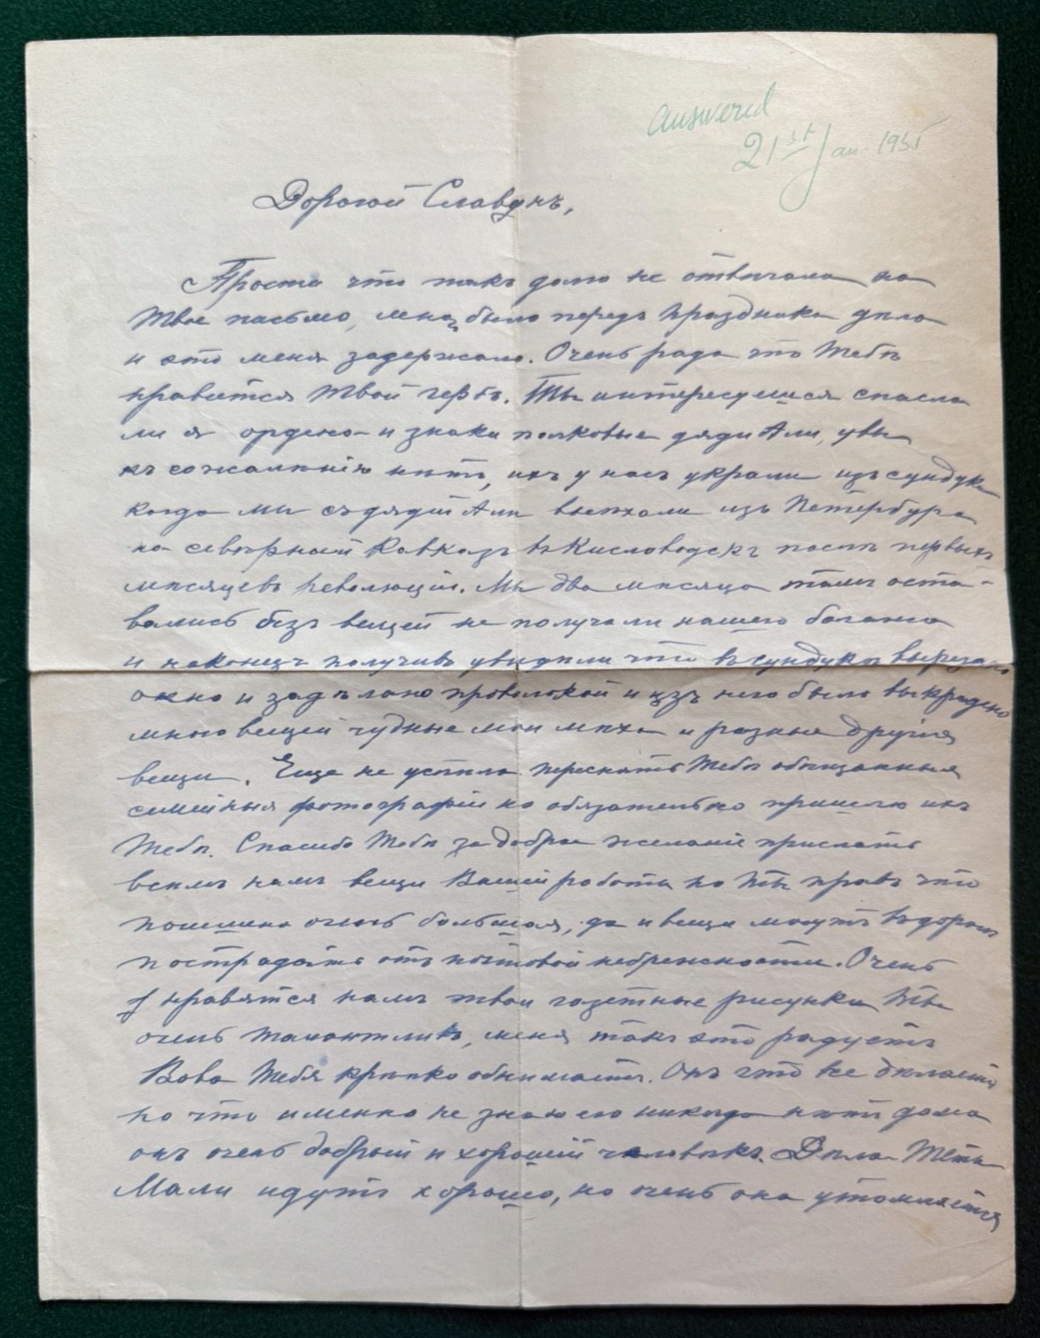 Answered
21st Jan. 1935
Дорогой Славунъ,
Прости что такъ долго не отвѣчала на
Твое письмо, много было передъ праздника дѣла
и это меня задержало. Очень рада что Тебѣ
нравится Твой гербъ. Ты интересуешся спасла
ли я ордена и знаки полковые дяди Али, увы
къ сожалѣнію нѣтъ, ихъ у насъ украли изъ сундука
когда мы съ дядей Али выѣхали изъ Петербурга
на сѣверный Кавказъ въ Кисловодскъ послѣ первыхъ
мѣсяцевъ революціи. Мы два мѣсяца тамъ оста-
вались безъ вещей не получали нашего багажа
и наконецъ получивъ увидѣли что въ сундукѣ вырѣзано
окно и задѣлано проволокой и изъ него было выкрадено
много вещей чудные мои мѣха и разныя другія
вещи. Еще не успѣла переснять Тебѣ обѣщанныя
семейныя фотографіи но обязательно пришлю ихъ
Тебѣ. Спасибо Тебѣ за доброе желаніе прислать
всѣмъ намъ вещи Вашей работы но Ты правъ что
пошлина очень большая, да и вещи могутъ въ дорогѣ
пострадать отъ почтовой небрежности. Очень
нравятся намъ твои газетные рисунки Ты
очень талантливъ, меня такъ это радуетъ
Вова Тебя крѣпко обнимаетъ. Онъ что то дѣлаетъ
но что именно не знаю его никогда нѣтъ дома
онъ очень добрый и хорошій человѣкъ. Дѣла Тети
Мали идутъ хорошо, но очень она утомляется